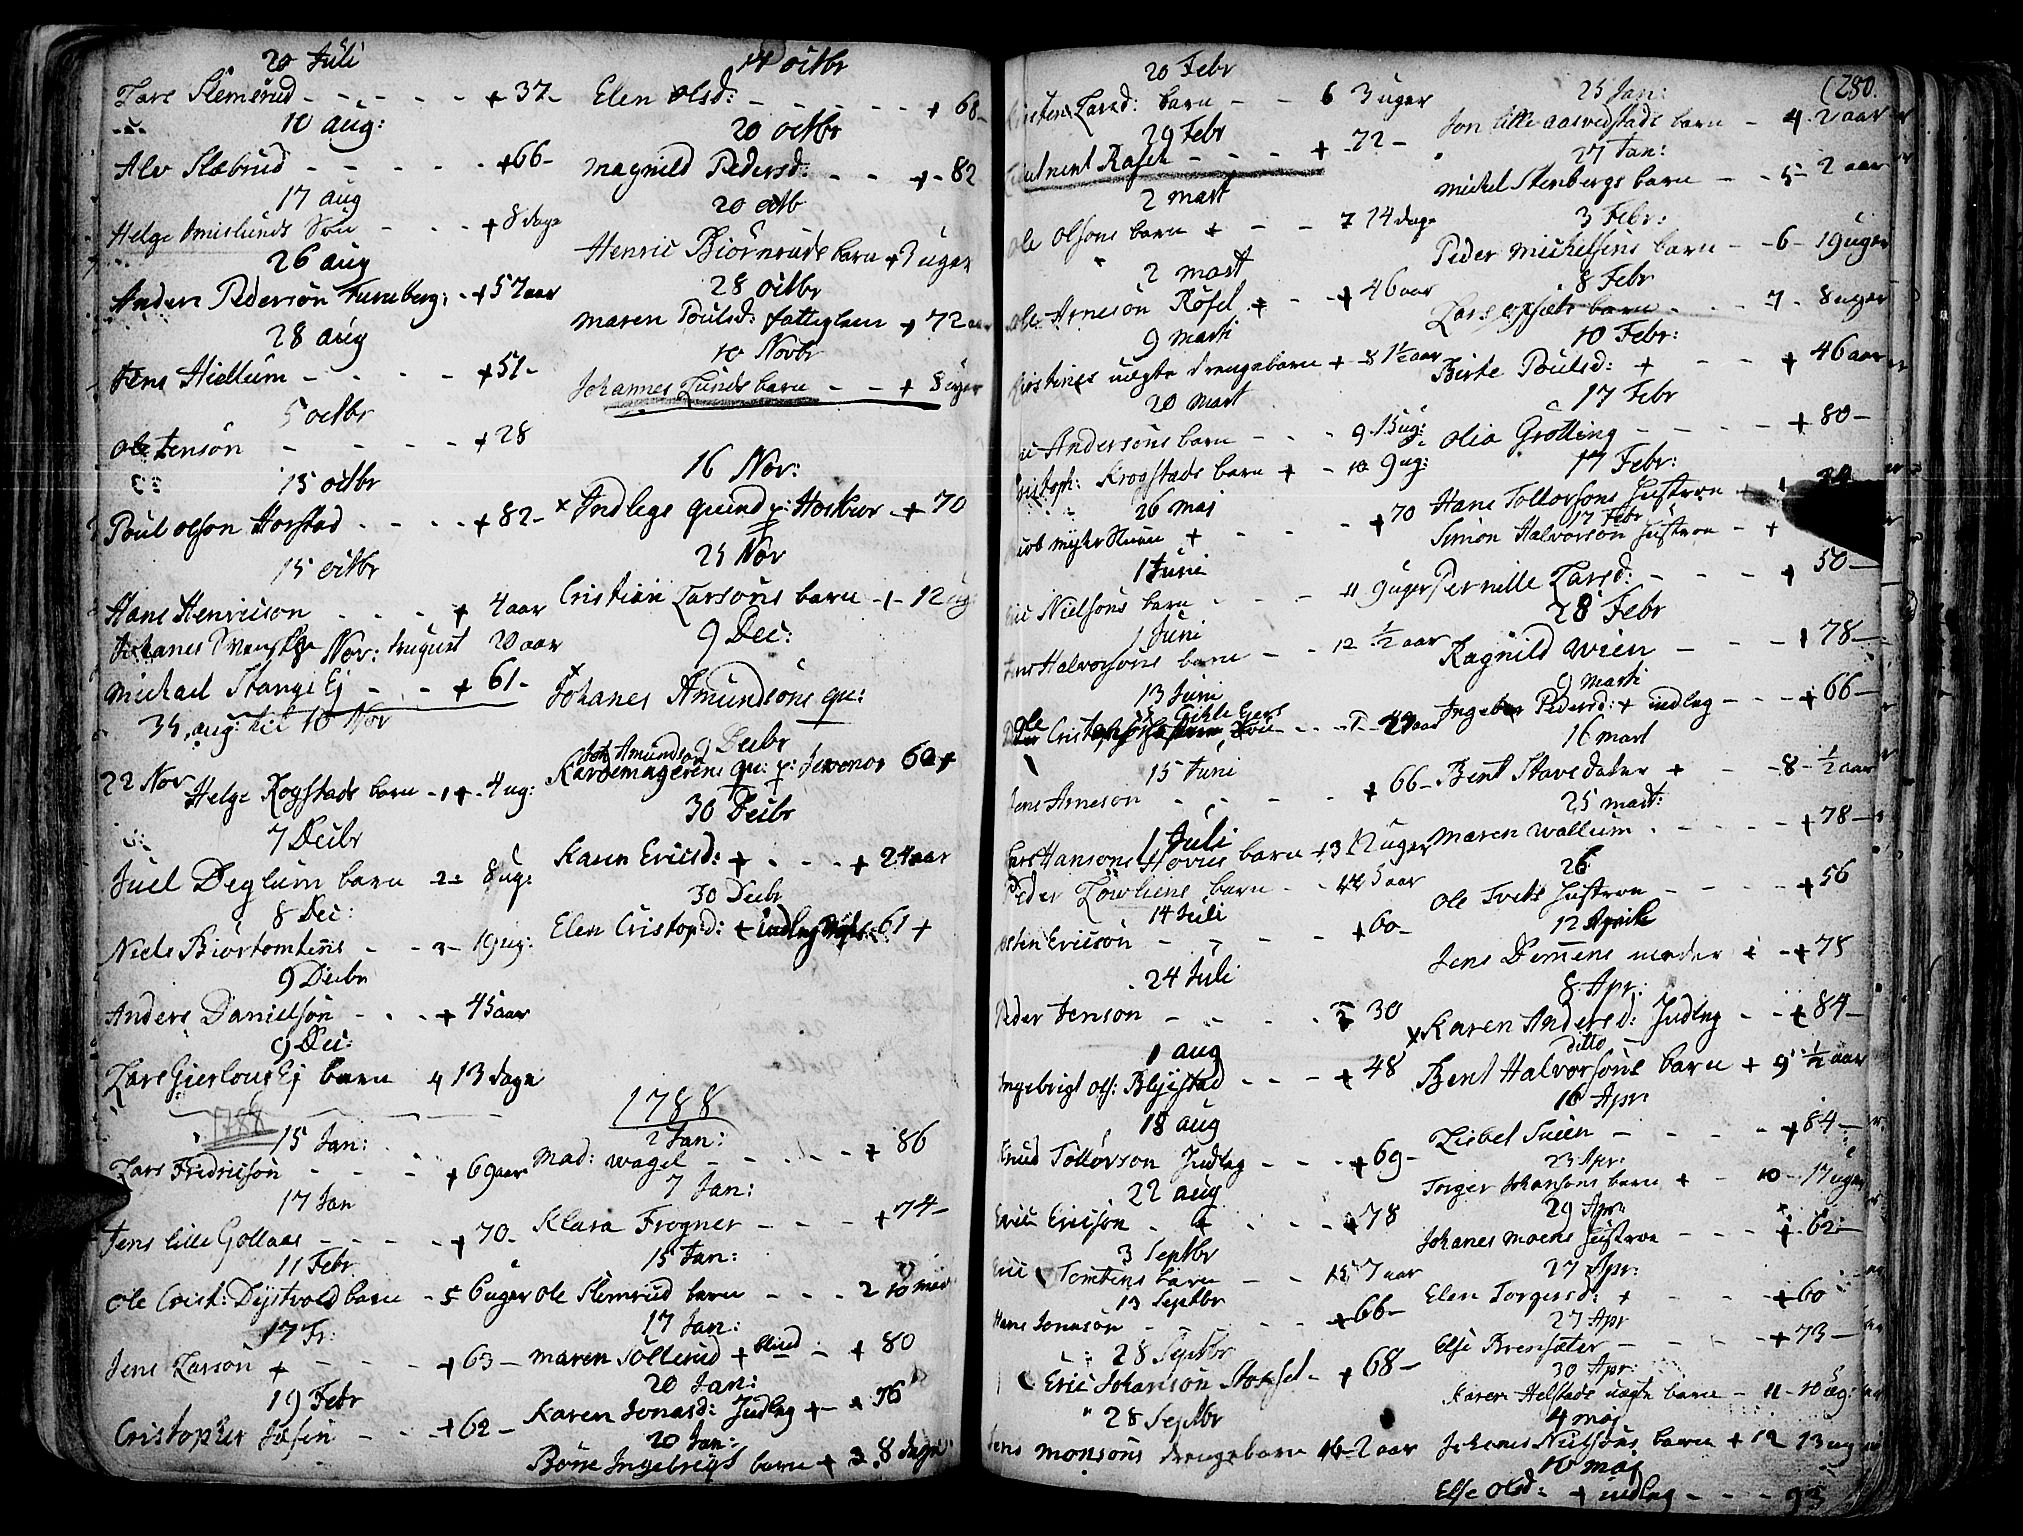 20 Juli
Lars Slemsrud - - - - - + 37 -
10 aug:
Alv Slæbrud - - - - - + 66 -
17 aug
Helge Amislunds Søn - - - + 8 dage
26 aug
Anders Pedersøn Furuberg: - + 57 aar
28 aug
Jens Hiellum - - - - + 51 -
5 octbr
Ole Jensøn - - - - + 28
15 octbr
Poul olson Horstad - - - - + 82 -
15 octbr
Hans Henricson - - - - + 4 aar
Johanes Nov: August 20 aar
Michael Stange Ej - - - + 61 -
aug: til 10 Nov
22 Nov Helge Rogstads barn - 1 + - 4 ug:
7 Decbr
Juel Deglum barn 2 = 8 ug:
8 Dec:
Niels Biørtomtens - - 3 - 19 ug:
9 Decbr
Anders Danielsøn - - - + 45 aar
9 Dec:
Lars Gierlous Ej barn 4 13 dage
1788
15 Jan:
Lars Fredricsøn - - - - + 69 aar
17 Jan
Jens lille Gollaas - - - - + 70 -
11 Febr
Ole Crist: Dystvold barn - 5 6 uger
17 Fr:
Jens Larsøn + - - - - + 63 -
19 Febr
Cristopher - - - + 62 -
14 octbr
Elen Olsd: - - - - - - + 68 -
20 octbr
Magnild Pedersd: - - + - 82
20 octb
Henric Biørnruds barn + 3 uger
28 octbr
Maren Poulsd: fattiglem + 72 aar
10 Novbr
Johannes Lunds barn - - + 8 uger
16 Nov:
x Indlegs quind p: Hoskur - + 70
25 Nov
Cristian Larsøns barn - 1 - 12 ug
9 Dec:
x Johanes Amundsøns qu:
9 Decbr
Joh Amundsøn
qu: p: 62 +
30 Decbr
Karen Ericsd: + - - - + 24 aar
30 Decbr
Elen Cristopsd: + indlag 61 +
1788
2 Jan:
Mad: Wagel - - - - - + 86
7 Jan:
Klara Frogner - - - - + 74 -
15 Jan:
Ole Slemsrud barn - - - 2 10
17 Jan:
Maren Søllerud + blind - + 80
20 Jan:
Karen Jonasd: Indlag + - + 76
20 Jan:
Børre Ingebrigt barn + 3. 8 dage
20 Febr
Kristen Larsd: barn - - 6 3 uger
29 Febr
Leutnent Rasch - - - - + 72 -
2 mart
Ole Olsøns barn + - - 7 14 dage
2 mart
Ole Arnesøn Røsel + - - + 46 aar
9 marti
Kirstines uægte drengebarn + - 8 1½ aar
20 mart
Andersøns barn - - - 9 15 ug:
Cristoph: Krogstads barn + - 10 9 ug:
26 maj
Jacob - - - + 70
1 Juni
Eric Nielsøns barn - - - 11 9 uger
1 Juni
Jens Halvorsøns barn - - 12 ½ aar
13 Juni
Ole
15 Juni
Jens Arnesøn - - - - + 66 -
1 Juli
Lars Hansøns barn + 13 12 uger
Peder barn - - 14 5 aar
14 Juli
østen Ericsøn - - - - + 60 -
24 Juli
Peder Jensøn - - - - + 30
1 aug
Ingebrigt Ols: Blystad - - - + 48
18 aug
Knud Tollørsøn Indlag - - - + 69 -
22 aug
Eric Ericsøn - + - - - + 78
3 Septbr
Eric Tomtens barn - - 15 7 aar
13 Septbr
Hans Jonasøn - - - - - + 66 -
28 Septbr
Eric Johansøn - + 68 -
28 Septbr
Jens Monsøns drengebarn 16 - 2 aar
(280.
25 Jan:
Jon lille aarvedstads barn - 4 - 2 aar
27 Jan:
Michel Stenbergs barn - - 5 - 2 aar
3 Febr:
Peder Michelsøns barn - - 6 - 19 uger
8 Febr
Lars barn - - - 7 - 8 uger
10 Febr:
Birte Poulsd: + - - - + 46 aar
17 Febr
Olia Grøtting - - - - + 80 -
17 Febr:
Hans Tollorsøns Hustroe +
17 Febr
Simon Halvorsøn Hustroe - +
Pernille Larsd: - - - + 50 -
28 Febr
Ragnild Wien - - - + 78 -
9 marti
Ingebor Pedersd: + indlag - - - + 66 -
16 mart
Bent Stavs dater + - - 8 - ½ aar
25 mart:
Maren Wallum - - - - + 78 -
26
Ole Tveits Hustroe - - - - + 56
12 Aprill
Jens moder + - + 75
8 Apr:
x Karen Andersd: Indlag - - + 84 -
ditto
Bent Halvorsøns barn + 9 ½ aar
16 Apr:
Lisbet Svien - - - - + 84 -
23 Apr:
Torger Johansøns barn + - 10 - 17 uger
29 Apr:
Johanes Moens Hustroe - - - + 62 -
27 Apr:
Elen Torgersd: + - - - + 60
27 Apr
Else Brensæter - - - - + 73 -
30 Apr:
Karen Helstads uægte barn - 11 - 10 ug:
4 maj
Johanes Nielsøns barn + 12 13 ug
10 maj
Else Olsd: + indlag - - - 93